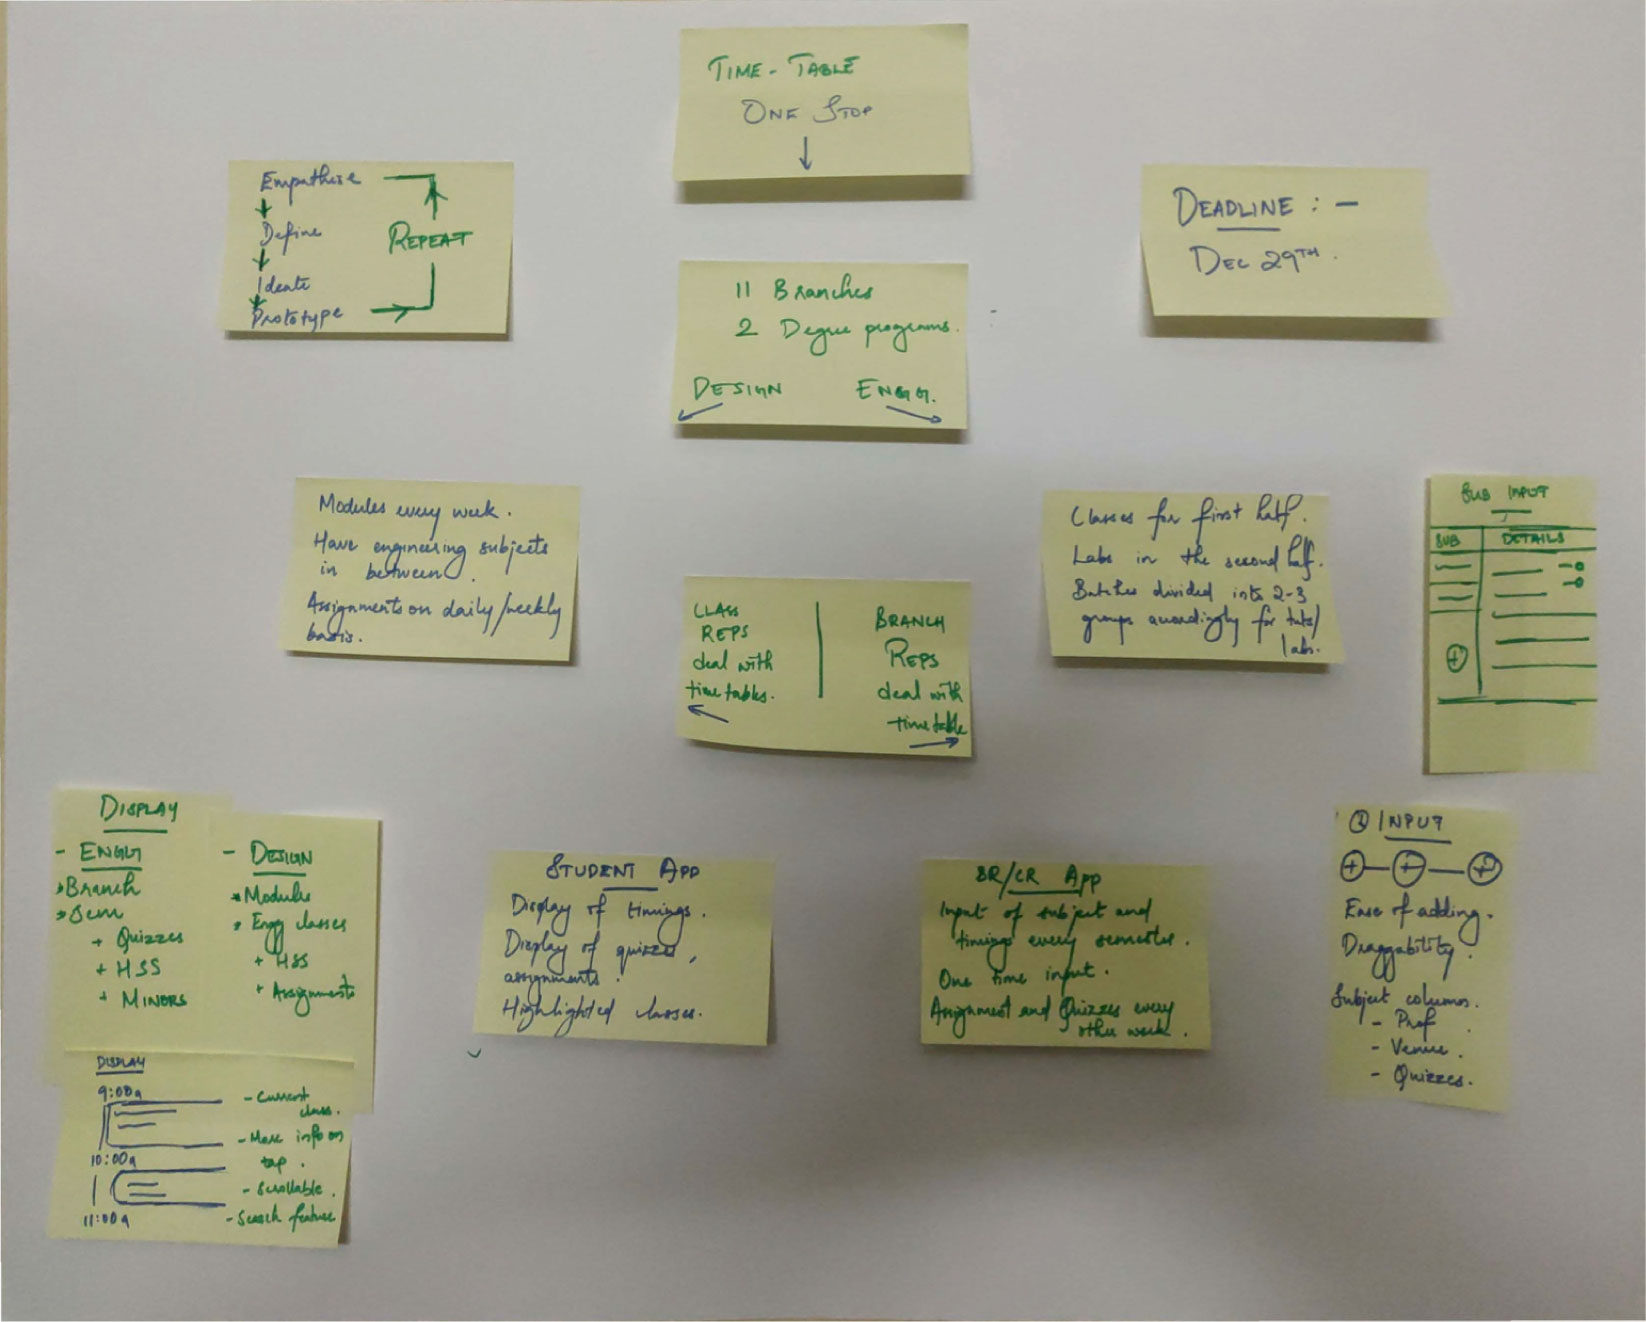 TIME - TABLE
ONE STOP
Empathise
Define
Ideate
Prototype
REPEAT
DEADLINE : -
DEC 29TH.
11 Branches
2 Degree programs.
DESIGN ENGG.
Modules every week.
Have engineering subjects
in between.
Assignments on daily/weekly
basis.
CLASS
REPS
deal with
time tables.
BRANCH
REPS
deal with
time table
Classes for first half.
Labs in the second half.
Batches divided into 2-3
groups accordingly for tuts/
labs.
SUB INPUT
SUB DETAILS
DISPLAY
- ENGG
Branch
Sem
+ Quizzes
+ HSS
+ MINORS
- DESIGN
Modules
Engg classes
+ HSS
+ Assignments
DISPLAY
9:00a
10:00a
11:00a
- Current
class.
- More info on
tap.
- Scrollable.
- Search feature
STUDENT APP
Display of timings.
Display of quizzes,
assignments.
Highlighted classes.
BR/CR APP
Input of subject and
timings every semester.
One time input.
Assignment and Quizzes every
other week.
INPUT
Ease of adding.
Draggability.
Subject columns.
- Prof
- Venue.
- Quizzes.